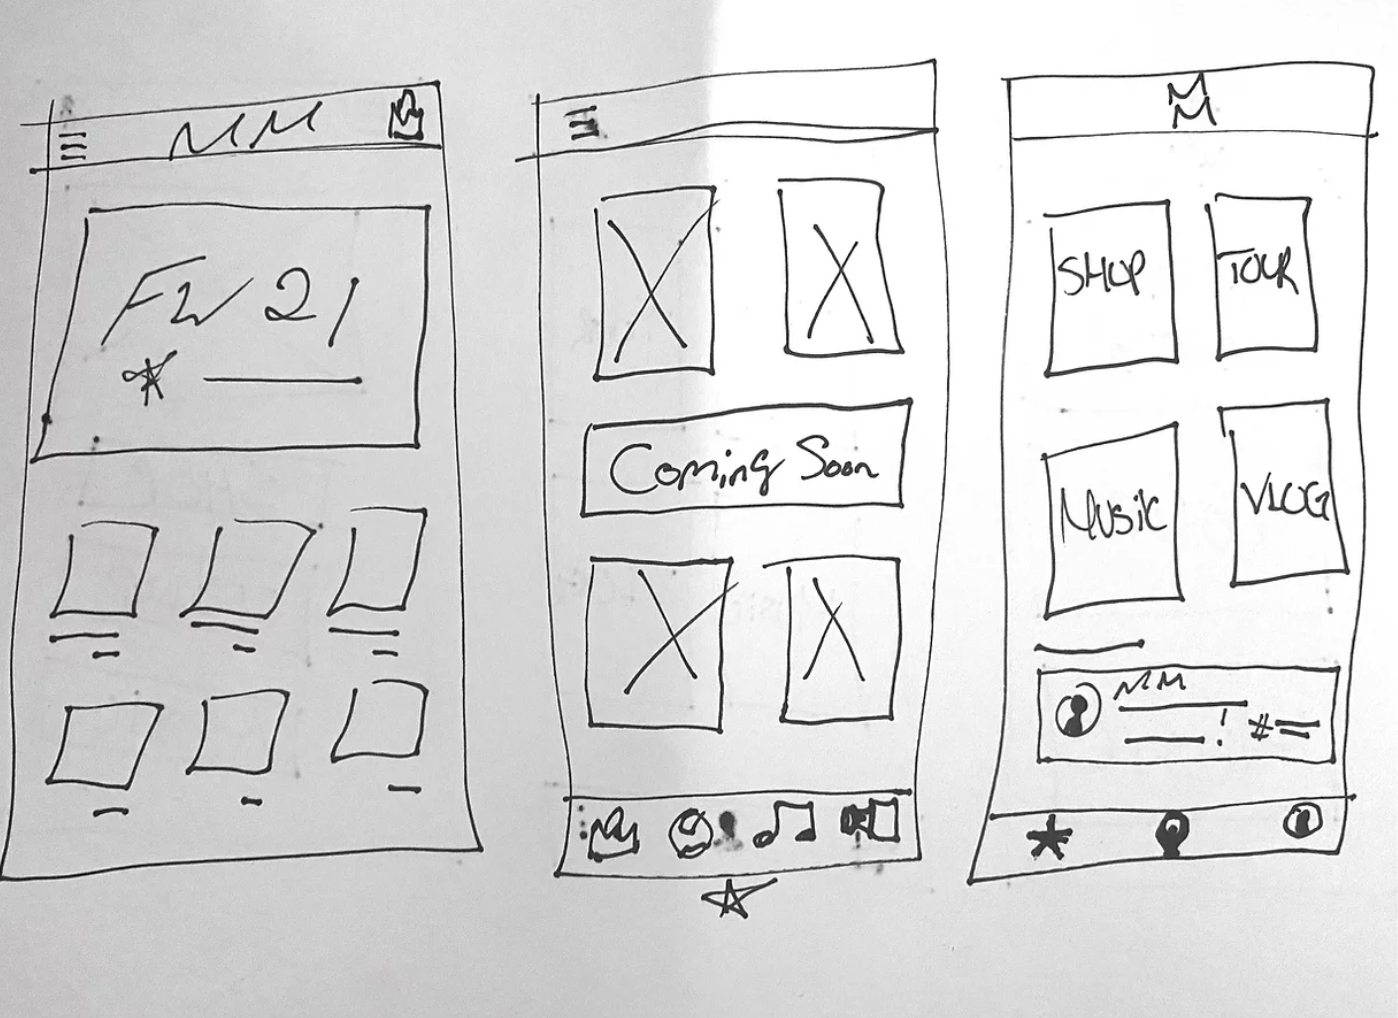 MM
FW 21
Coming Soon
M
M
SHOP
TOUR
Music
VLOG
MM
! #